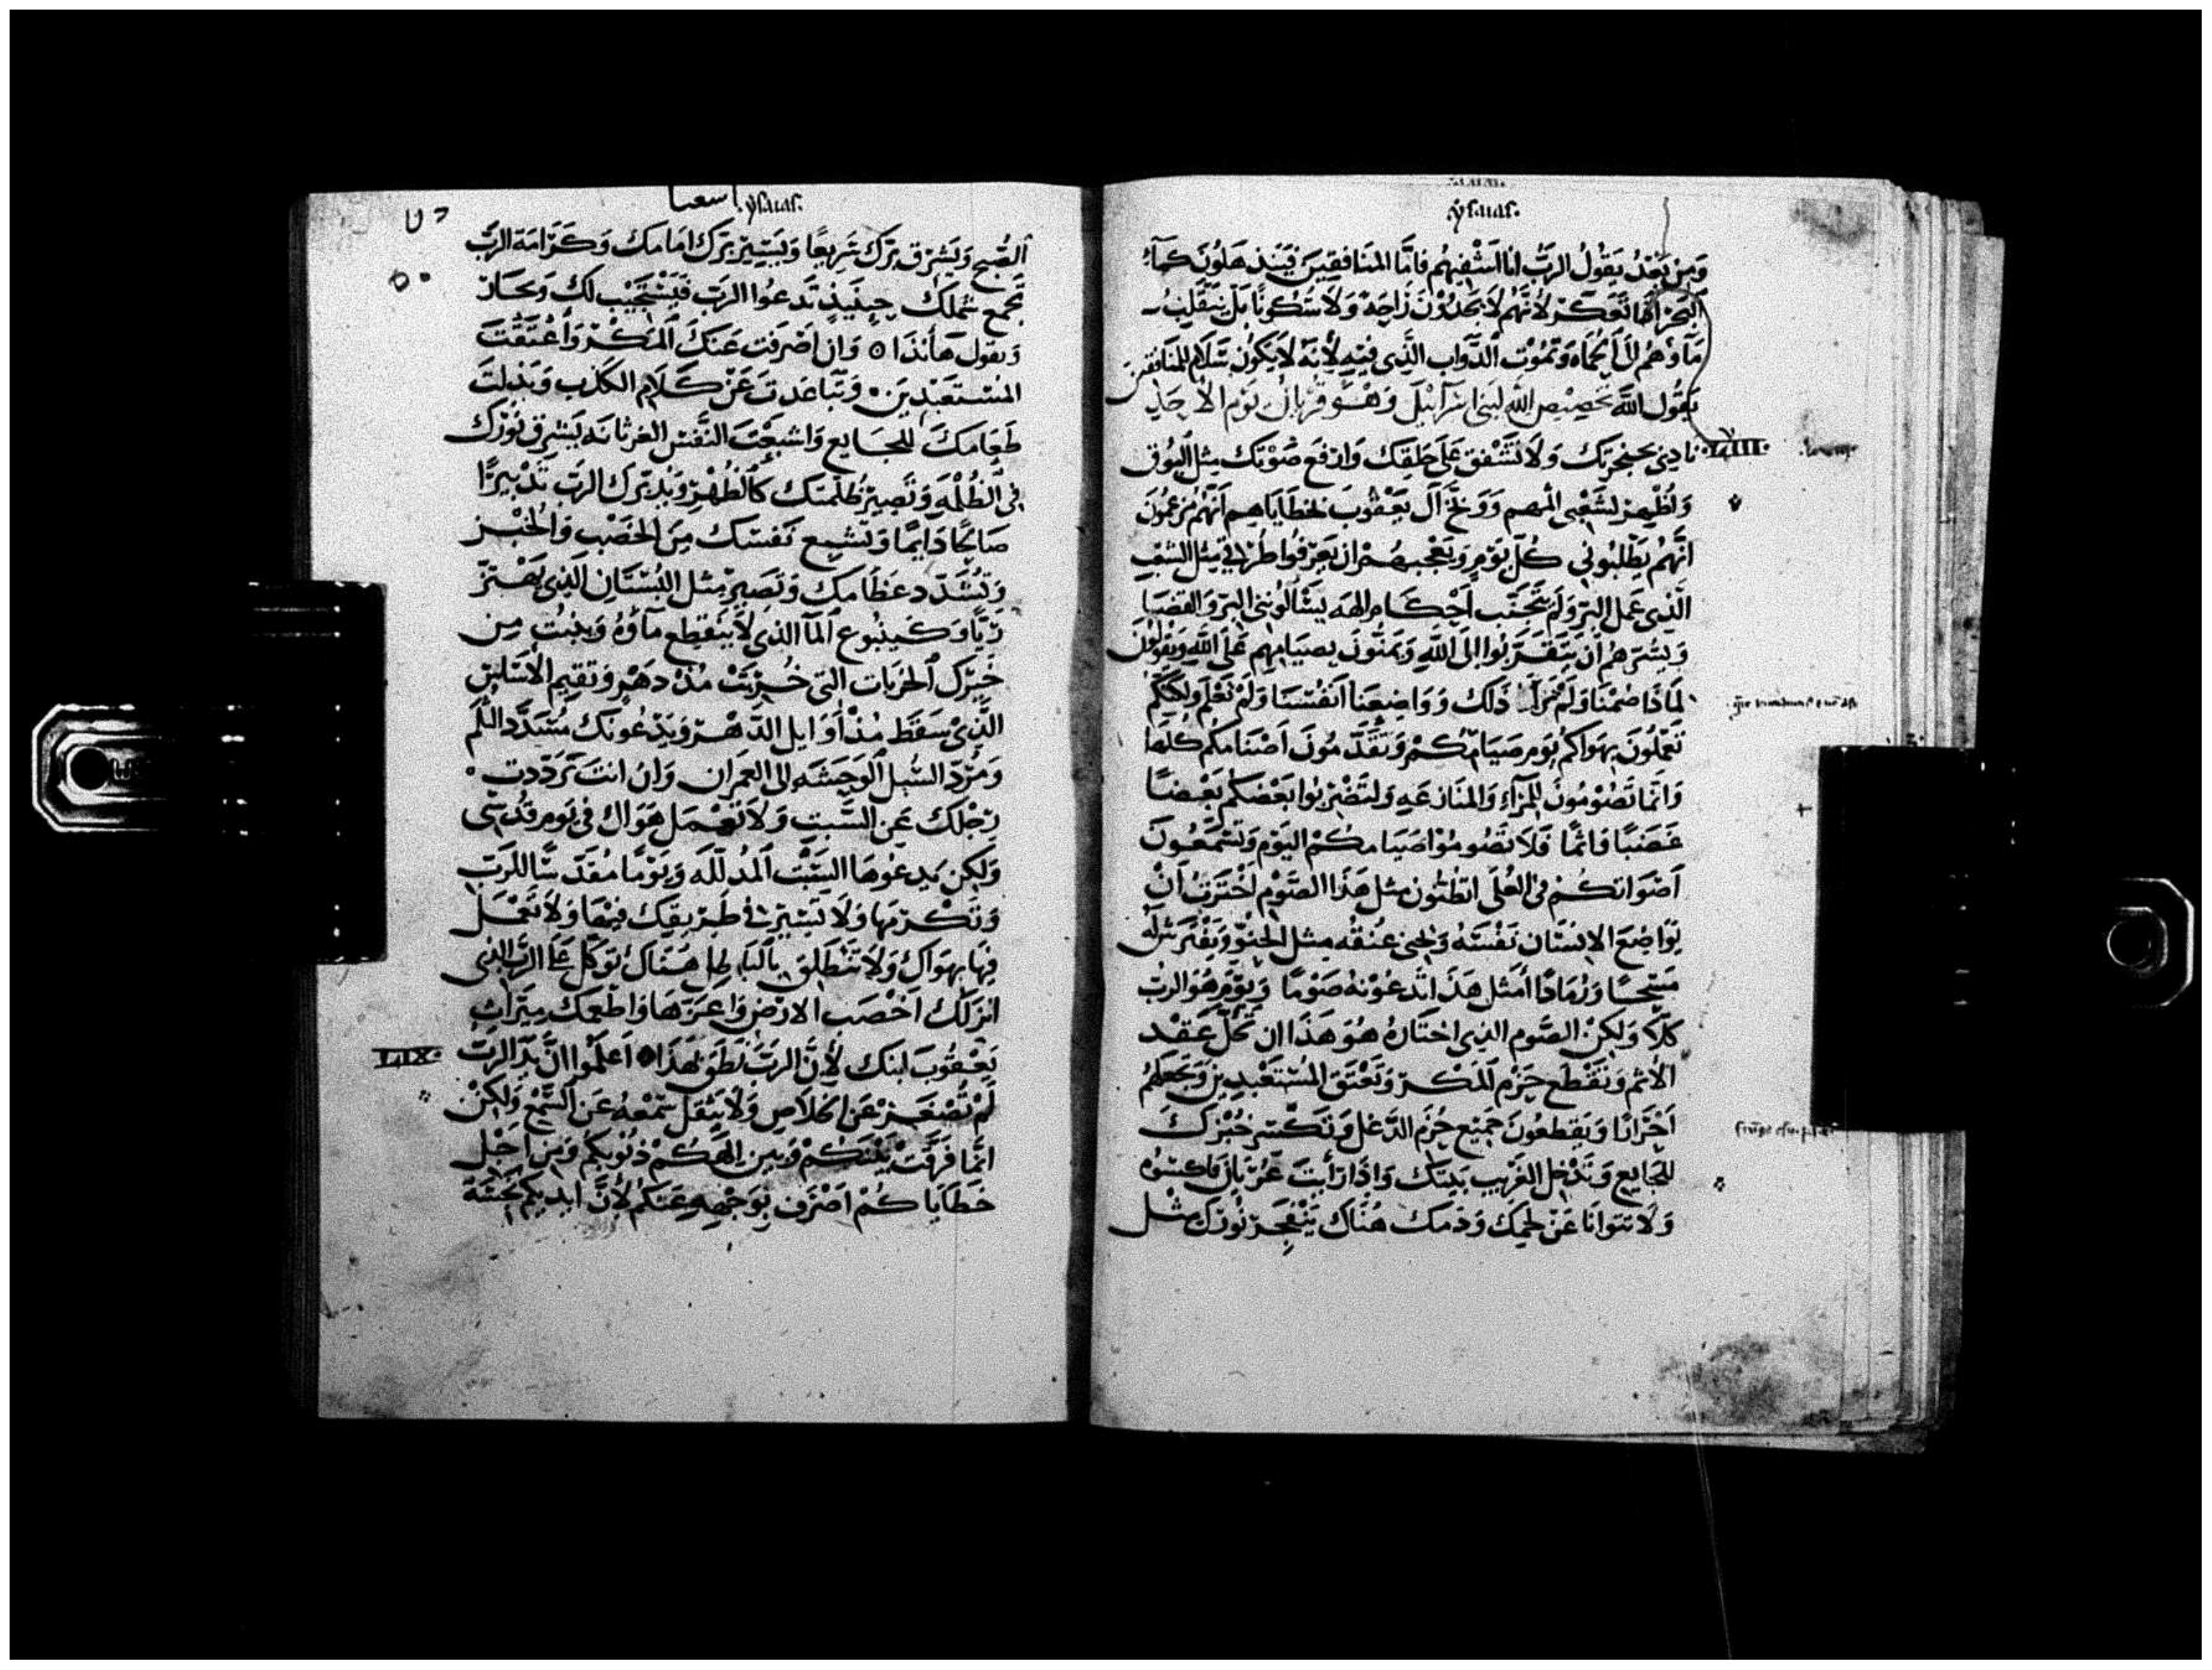 ysaias.
وَمِنْ بَعْدُ يَقُولُ الرَبُّ انا اَشْفِيهُم فامَّا المنَافقِينَ كمآءِ
البَحرْ لأنهُم لاَ يَجدُوْنَ رَاحِهً وَلاَ سُكُونًا بَل يَنقَلِبُ
مَآوُهُمُ وَتَمُوْتُ الدَّوَاب الَّذِى فيْهِ لأنهُ لاَ يَكُونْ سَلاَم لِلمنَافقين
يَقُول اللَّه تخصِيْص اللَّهِ لبَنىِ اسْرَآئيْلَ وَهْـوَ قُربَانْ يَوْم الأَحَدِ
LVIII. نادِىِ بحنجرَتِكَ وَلاَ تُشْفِق عَلىَ حَلقِكَ وَارفَع صَوْتِكَ مِثل البُوق
وَاُظْهِرْ لشَعْبِى اثمهم وَوَبِّخْ آلَ يَعْقُوبَ بخَطَايَاهِـم
انَّهُمْ يَطْلبُونِى كُلّ يَوْمٍ وَيعْجبهُمْ ان يَعرفُوا طُرُقِى مِثل الشَعْبِ
الَّذِى عَملَ البِرّ وَلَم يَتَجَنَّب اَحْكَامِ الهَه يَسْألُونِنِى البِرّ وَالقضَايَا
وَيَسُرّهُم اَنْ يَتَقَرَّبُوا الَى اللَّهِ وَيَمَنُّونَ بصِيَامِهِم عَلىَ اللَّهِ وَيَقُولُونَ
لمَاذَا صُمْنَا وَلَمْ تَرَ ذَلِكَ وَوَاضَعنَا اَنفُسَنا وَلَمْ تَعْلَم وَلكِنَّكُم
تَعْمَلُونَ بهَوَاكُم يَوْم صَيَامِكُمْ وَتُقدّمُونَ اَصْنامكُم كُلّهَا
وَانمَّا تَصُوْمُونَ لِلمِرَآءِ وَالمنَازَعَهِ وَلتَضْرِبُوا بَعْضكُم بَعْـضًا
غَصْبًا وَاثمًا فَلاَ تَصُومُوْا صَيَامكُم اليَوْم وَتُسْمِعُونَ
اَصْوَاتكُم فِى العُلَى اتظُنّون مثل هَذَا الصَّوْم اَخترْتُ اَنْ
يُوَاضِعَ الانسَان نَفْسَهُ وَيُحنِى عنُقُه مِثل وَيَفْتَرِشْ لَهُ
مَسْحًا وَرَمَادًا اَمثل هَذَا تَدْعُوْنهُ صَوْمًا وَيَوْم هُوَ الرب
كَلاَّ وَلكِنْ الصَّوم الذِى اختَارهُ هُوَ هَذَا ان تحُلّ عَـقْد
الأثم وَتَقْطَع حَزم المَكْر وَتَعتق المُسْتَعْبدِينَ وَتجعَلهُم
اَحْرَارًا وَيَقطعُونَ جَمِيْع حُزَم الدَّغل وَتكَسّر خُبْزكَ
للجَايع وَتُدْخِل الغَرِيب بَيتكَ وَاِذَا رَأيتَ عُرْيَان فاكسُوْه
وَلاَ تتوَانَا عَنْ لحمِكَ وَدمَك هُنَاك يَنْفَجِر نُورَك مِثْل
اسعيا ysaias.
الصُّبح وَيَشْرِق بِرّكَ سَرِيعًا وَيَسِيْر بِرّكَ امَامَك وَكَرَامَة الرَّب
تجْمَع شملكَ حِينَيذٍ تَدعُوا الرَب فَيَسْتجَيْب لكَ وَتجَار
وَيقول هَأنَذَا وَان اَصْرَفت عَنكَ المَكْـر وَاَعْتَقْتَ
المُسْتَعْبَدِيَن وَتَبَاعَدتَ عَنْ كَلاَم الكَذِب وَبَذَلتَ
طَعَامكَ للجَايع وَاشبعْتَ النَّفس الغرثانَه يُشرِق نُوْرَكَ
فِى الظُلمَه وَتَصِير ظُلمتكَ كَالظُهْر وَيُدَبّرك الرَب تَدْبِيرًا
صَالحًا دَايمًا وَتَشبع نَفسَكَ مِنَ الخصْب وَالخَيْر
وَتُشَدّد عظَامك وَتَصير مثل البُسْتَان الذِى يَهْتَزّ
رَيًّا وَكَـينْبُوع المآ الذِى لاَ ينَقطِع مآوُهُ وَينبُت مِن
الخرَبات التى خُرِبَتْ مُنْذ دَهْر وَتقيم الأَسَاس
الَّذِى سَقَط مُنذ أَوَايل الدَّهْر وَيَدعُونك مُسَدّد الثُلم
وَمُرَدّ السُبل الوَحِشَه الى العمرَان وَان انتَ رَدّدت
رِجْلكَ عَن السَّبتِ وَلاَ تَعْمَل هَوَاك فى يَوم قُدْسِى
وَلكن يَدعُوهَا السَبْت المُدلّلَه وَيَوْمًا مُقَدّسًا للرَّب
وَتكْرمَهَا وَلاَ تَسِيْر فى طَرِيقك فِيْهَا وَلاَ تَعْمَل
فِهَا بهَوَاكَ وَلاَ تَنْطَلِق بالبَاطِل هُنَاك تَوَكل عَلى الرَّب الذِى
انزَلك اخْصَب الارَض وَاعَزّهَا وَاطعمكَ مِيَراث
LIX. يَعْقُوبَ ابيك لأنَّ الرَبَّ نَطَق بهَذَا اَعلمُوا اَنَّ يَدّ الرَبّ
لَمْ تَصْغـر عَن الخلاَص وَلاَ يثقل سَمْعهُ عَن السّمْع وَلكِنْ
انمَّا فرَقَت بَيْنكُمْ وَبَين الهكُم ذنُوبكُم وَمِن اَجْل
خَطَايَا كُمْ اَصْرَف بِوَجْهِهِ عَنكُمْ لأَنَّ ايديكُم نجسَة